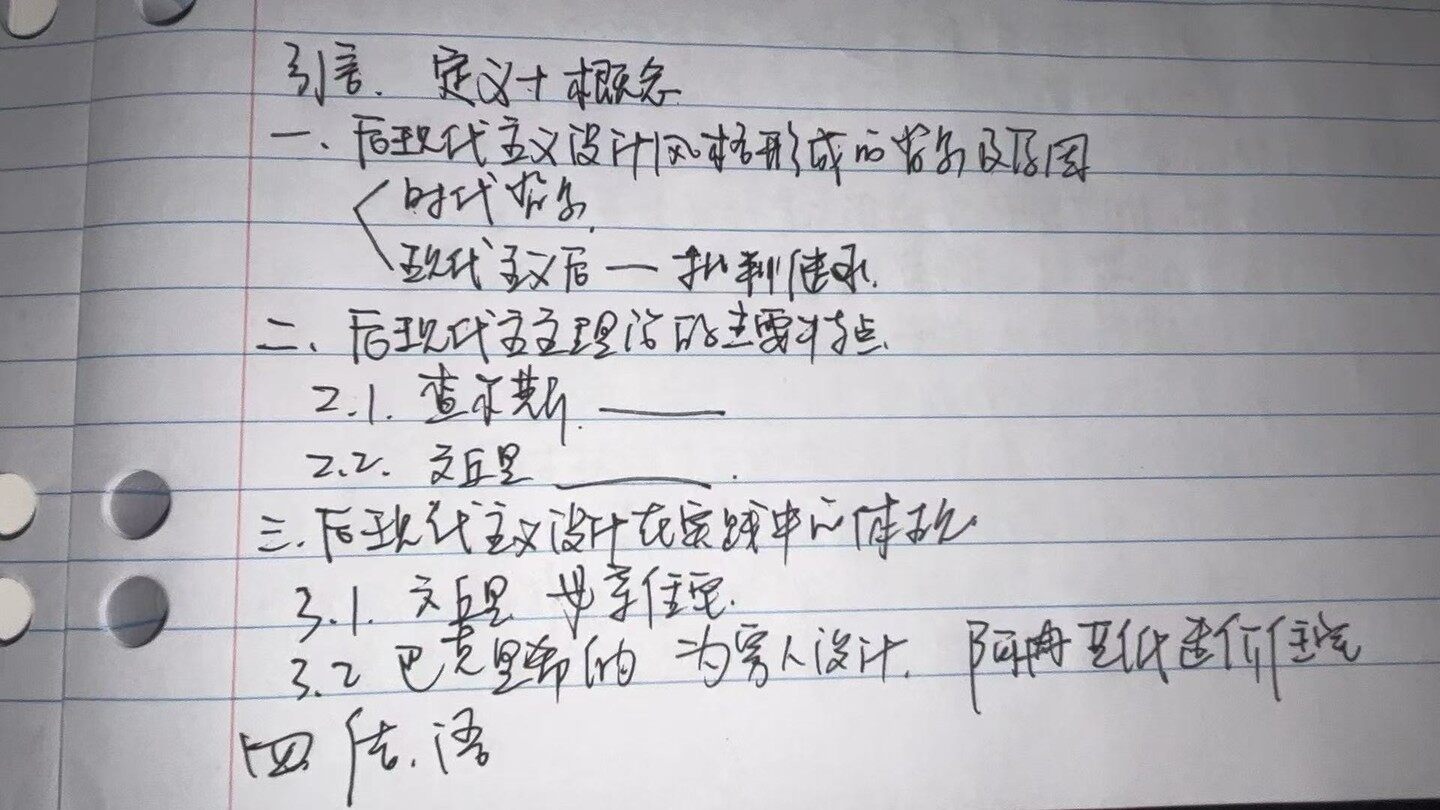 引言. 定义+概念
一. 后现代主义设计风格形成的背景及原因
时代背景
现代主义后 — 批判继承.
二. 后现代主主理论的主要特点.
2.1. 查尔斯 ———
2.2. 文丘里 ———.
三. 后现代主义设计在实践中的体现
3.1. 文丘里 母亲住宅.
3.2 巴克里希的 为穷人设计. 阿冉亚低造价住宅
四. 结.语